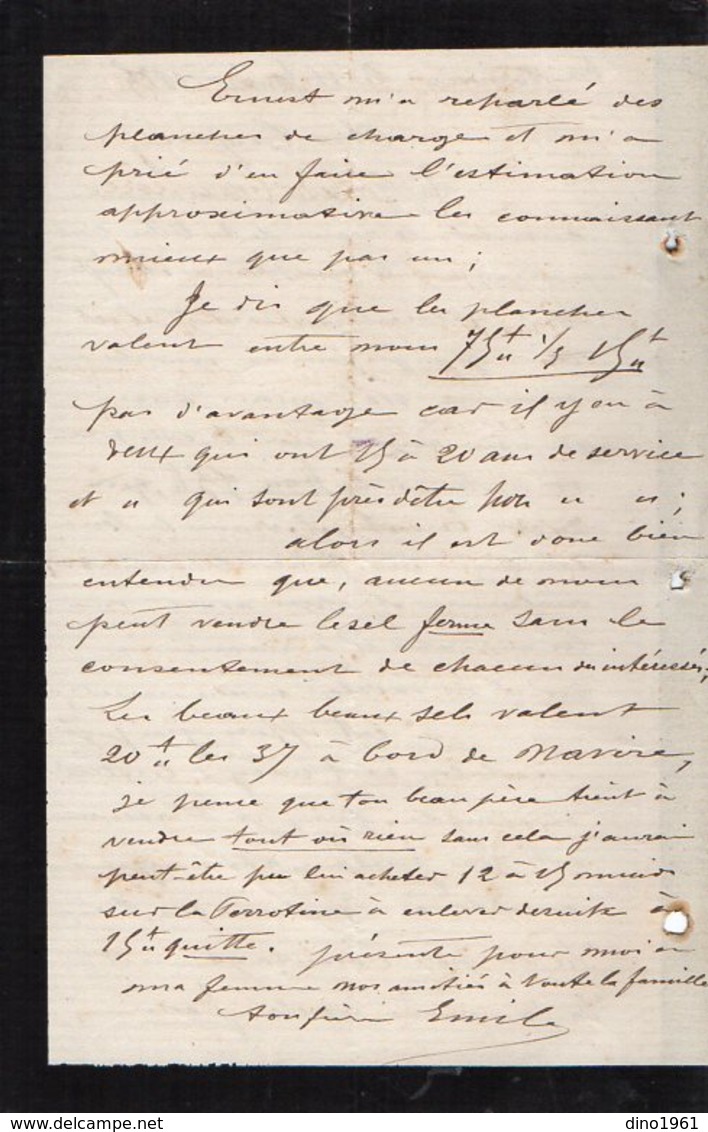 Ernest m'a reparlé des
planches de charge et m'a
prié d'en faire l'estimation
approximative les connaissant
mieux que pas un ;
Je dis que les planches
valent entre nous 75 ₶ 1/5 15 ₶
pas d'avantage car il y en à
deux qui ont 15 à 20 ans de service
et " qui sont près d'être hors " " ;
alors il est donc bien
entendu que, aucun de nous
peut vendre le sel ferme sans le
consentement de chacun des intéressés ;
Les beaux beaux sels valent
20 ₶ les 37 à bord de Navire,
je pense que ton beau père tient à
vendre tout où rien sans cela j'aurai
peut-être pu lui acheter 12 à 15 muids
sur la à enlever de suite à
15 ₶ quitte. présente pour moi et
ma femme nos amitiés à toute la famille
ton frère Emile
delcampe.net
dino1961